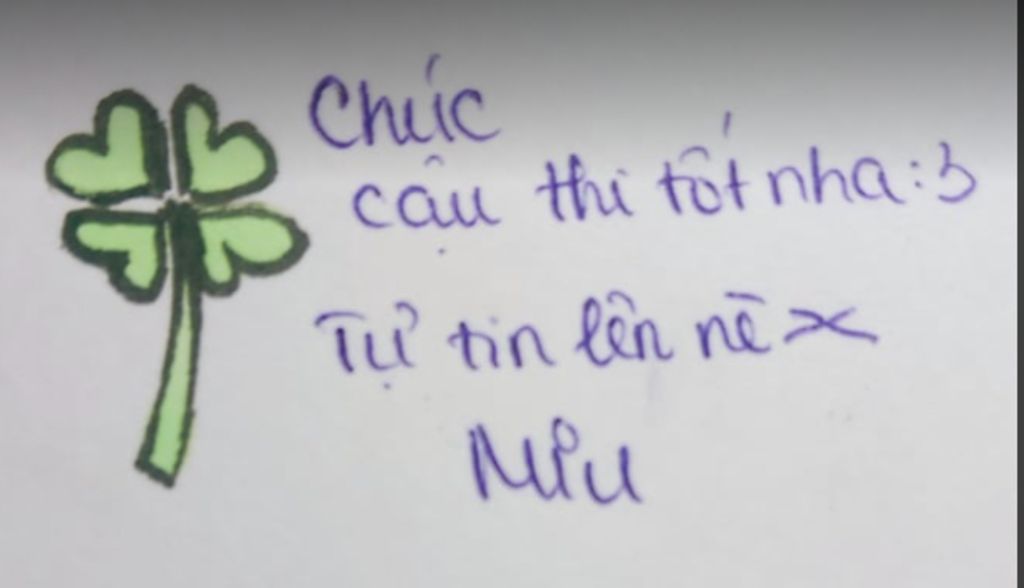 Chúc
cậu thi tốt nha:3
Tự tin lên nè
Mỉu